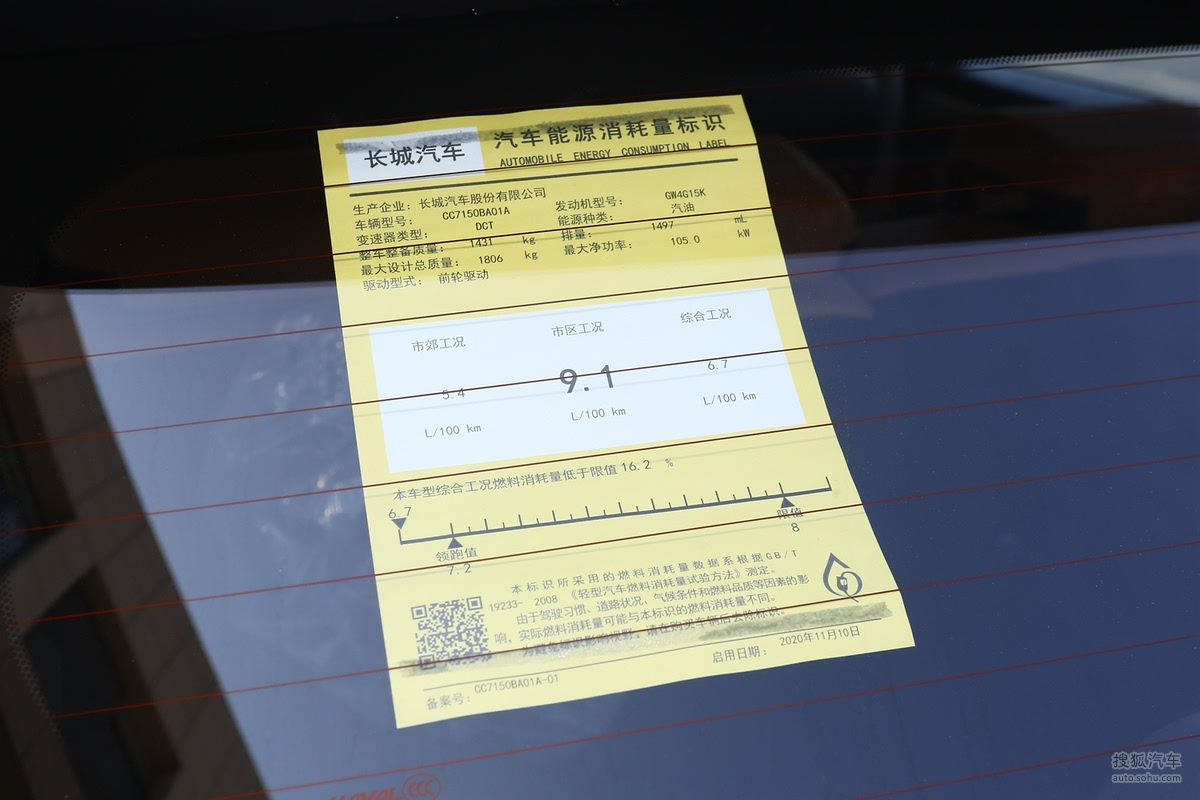 长城汽车
汽车能源消耗量标识
AUTOMOBILE ENERGY CONSUMPTION LABEL
生产企业：长城汽车股份有限公司
车辆型号： CC7150BA01A 发动机型号： GW4G15K
变速器类型： DCT 能源种类： 汽油
整车整备质量： 1431 kg 排量： 1497 mL
最大设计总质量： 1806 kg 最大净功率： 105.0 kW
驱动型式： 前轮驱动
市郊工况 市区工况 综合工况
5.4 9.1 6.7
L/100 km L/100 km L/100 km
本车型综合工况燃料消耗量低于限值16.2 %
6.7
领跑值 限值
7.2 8
本标识所采用的燃料消耗量数据系根据GB/T
19233- 2008 《轻型汽车燃料消耗量试验方法》测定。
由于驾驶习惯、道路状况、气候条件和燃料品质等因素的影
响，实际燃料消耗量可能与本标识的燃料消耗量不同。
为避免标识影响视野，请在购买车辆后去除标识。
备案号： CC7150BA01A-01 启用日期： 2020年11月10日
HAVAL CCC
搜狐汽车
auto.sohu.com